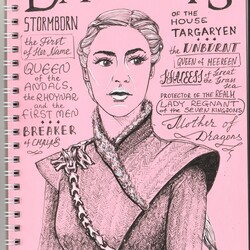 STORMBORN
the First
of Her Name
QUEEN
OF THE
ANDALS,
THE RHOYNAR
AND THE
FIRST MEN
BREAKER
OF CHAINS
OF THE
HOUSE
TARGARYEN
the UNBURNT
QUEEN OF MEEREEN
KHALEESI of the Great Grass Sea
PROTECTOR OF THE REALM
LADY REGNANT
OF THE SEVEN KINGDOMS
Mother of
Dragons